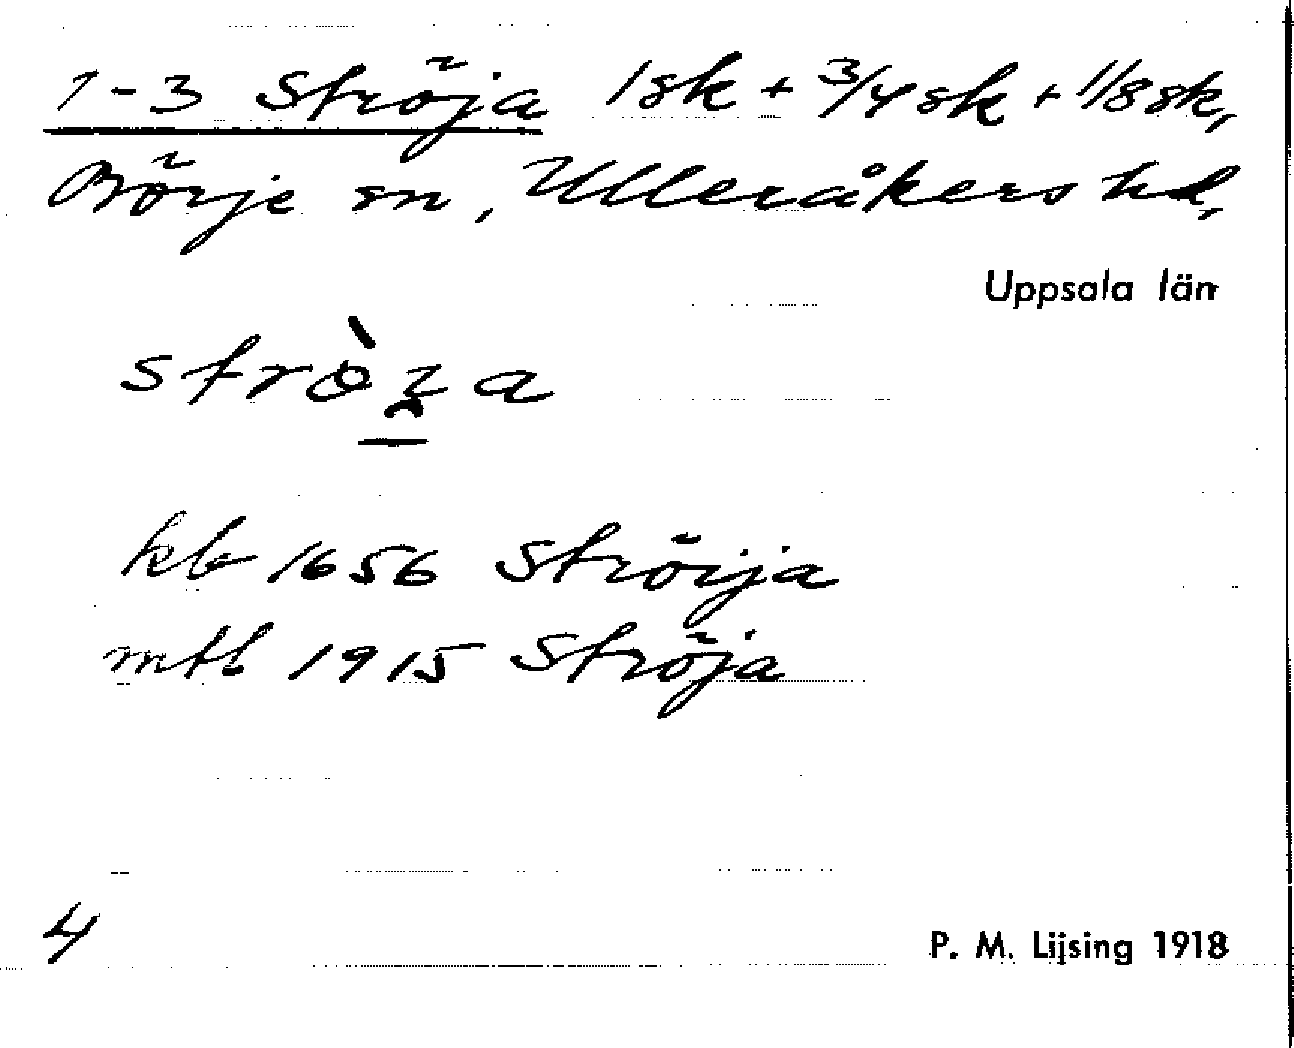 1-3 Ströja 1 sk + 3/4 sk + 1/8 sk,
Börje sn, Ulleråkers hd,
Uppsala län
kb 1656 Ströija
mtl 1915 Ströja
4
P. M. Lijsing 1918